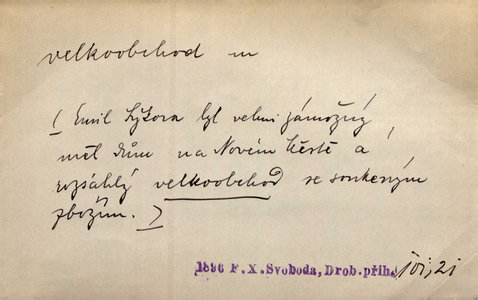 velkoobchod m
( Emil Sýkora byl velmi zámožný,
měl dům na Novém Městě a
rozsáhlý velkoobchod se soukenným
zbožím. )
1896 F. X. Svoboda, Drob. příh.